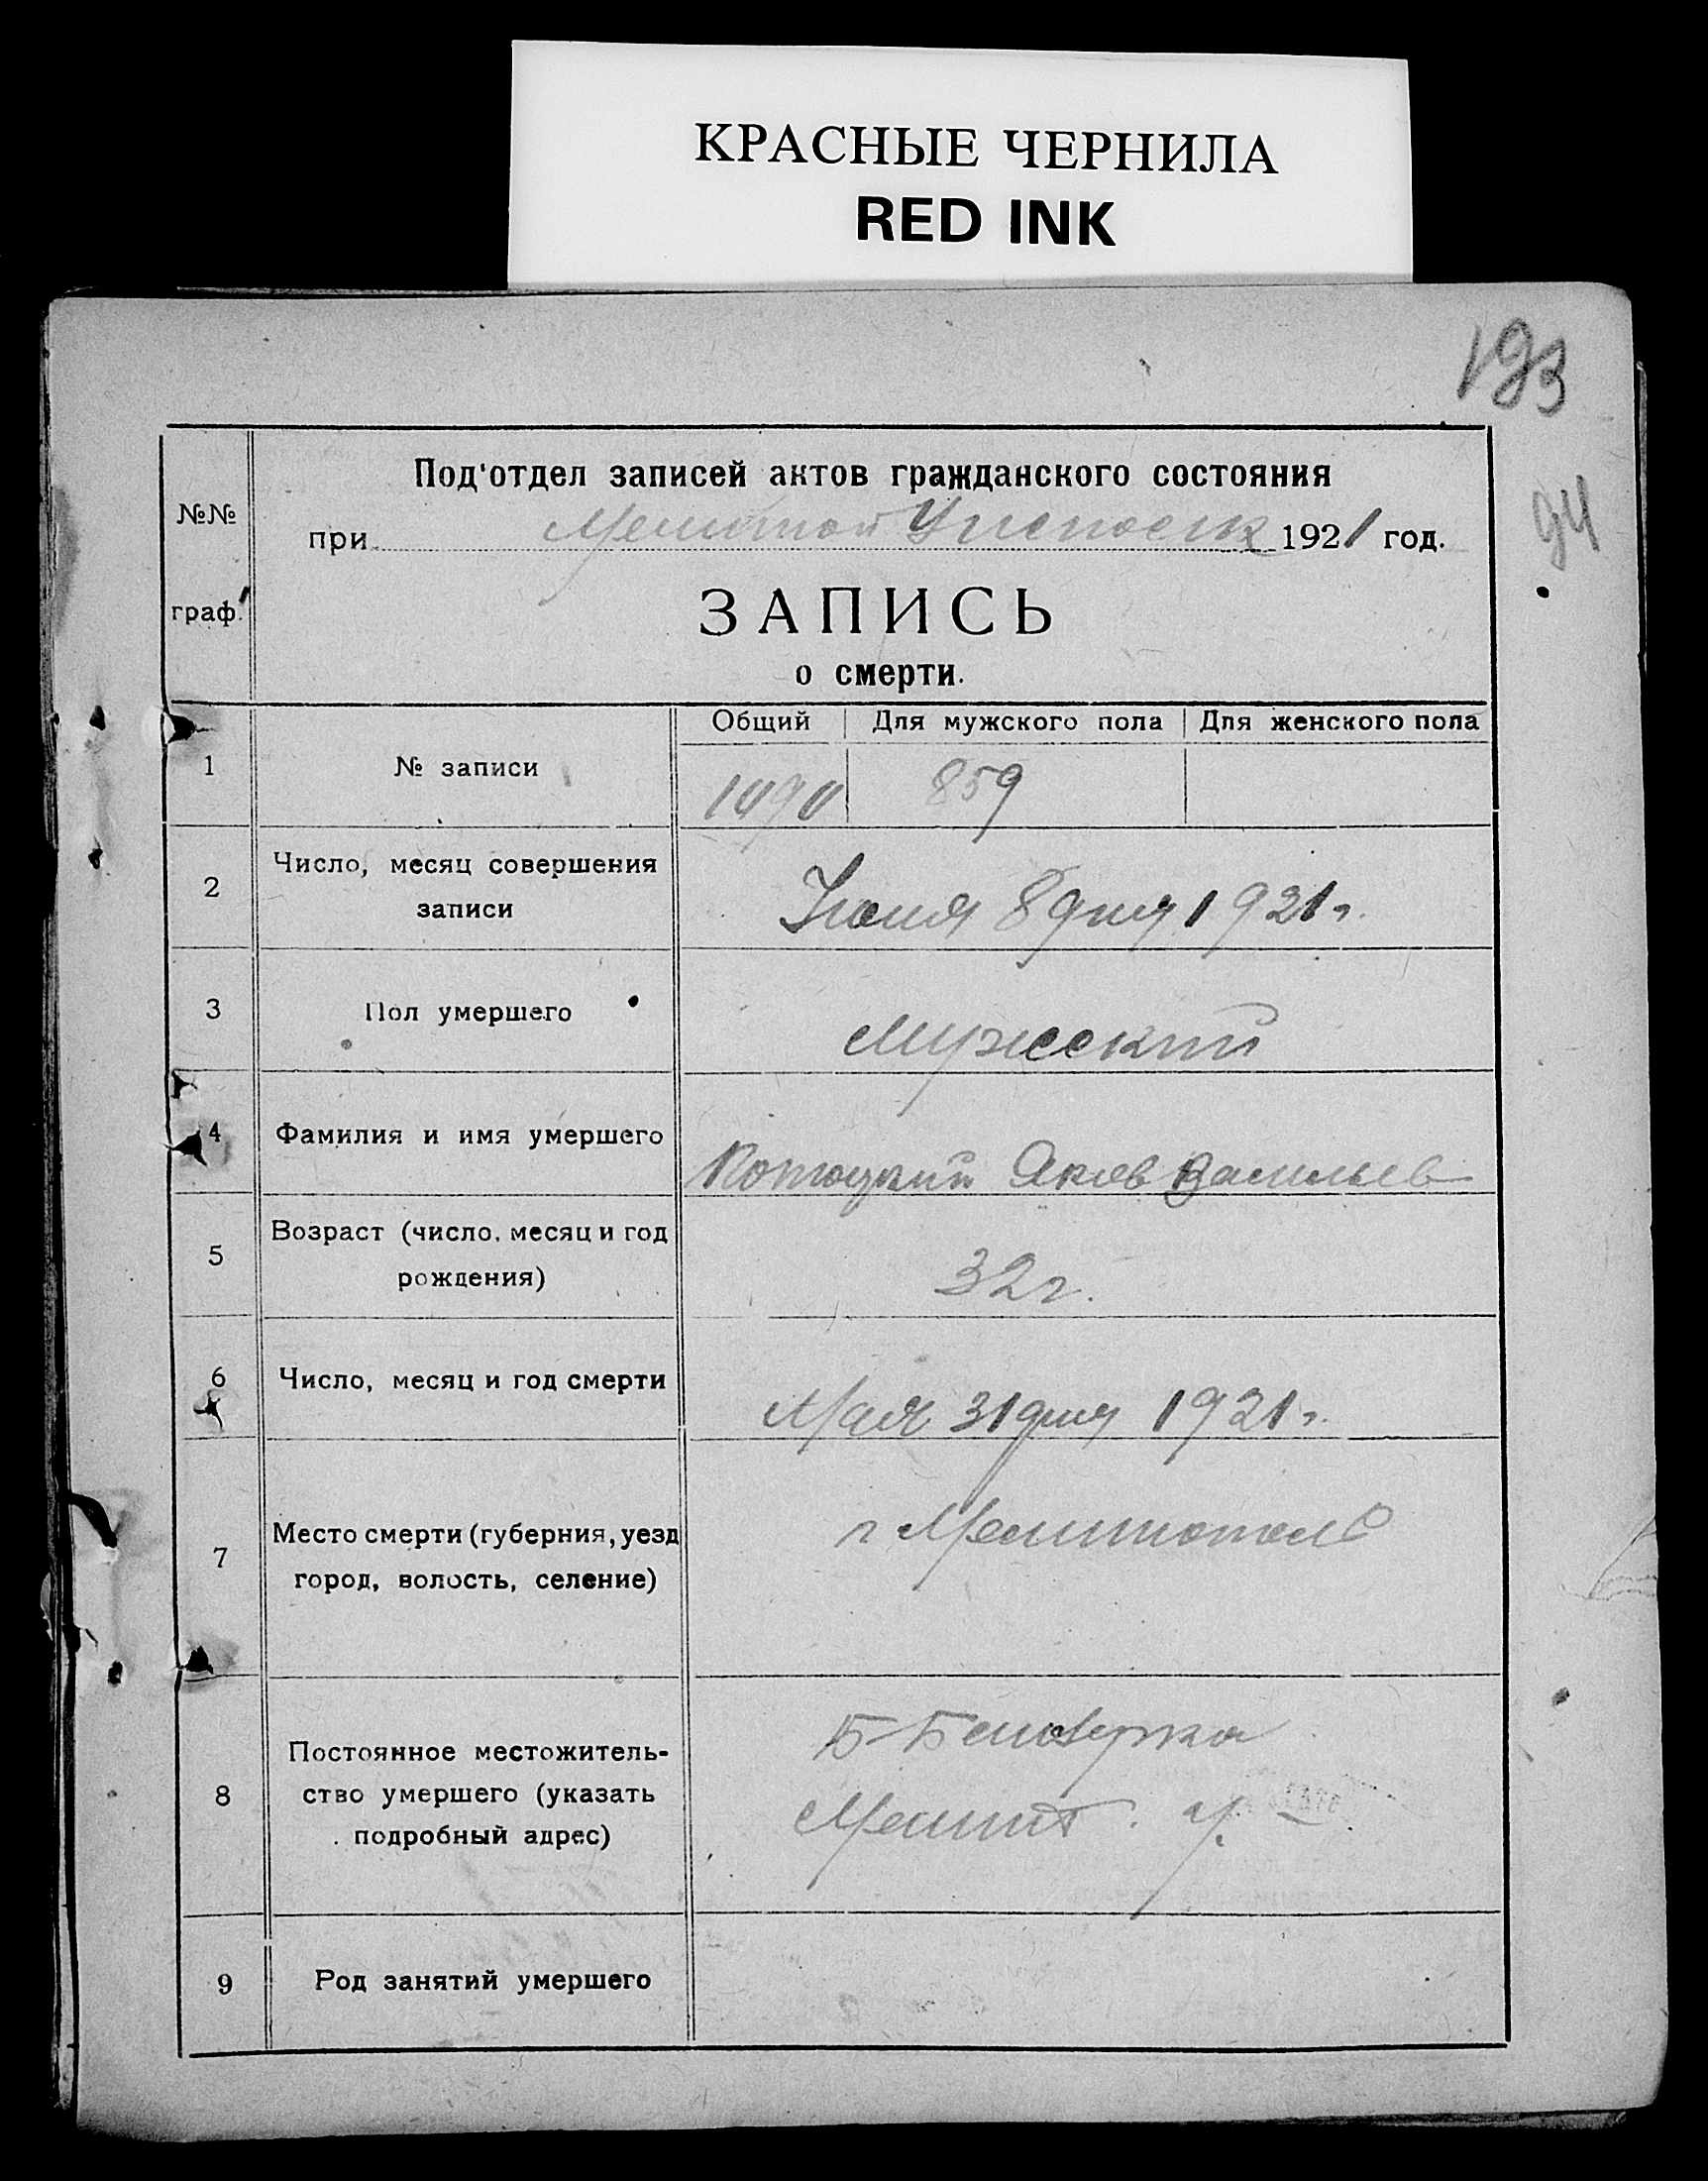 КРАСНЫЕ ЧЕРНИЛА
RED INK
193
94
№№ граф.
Под'отдел записей актов гражданского состояния
при Мелитоп 1921 год.
ЗАПИСЬ
о смерти.
Общий Для мужского пола Для женского пола
1 № записи 1490 859
2 Число, месяц совершения
записи
Июня 8 дня 1921 г.
3 Пол умершего Мужеский
4 Фамилия и имя умершего Яков Васильев
5 Возраст (число, месяц и год
рождения)
32 г.
6 Число, месяц и год смерти Мая 31 дня 1921 г.
7 Место смерти (губерния, уезд
город, волость, селение)
г Мелитополь
8 Постоянное местожитель-
ство умершего (указать
подробный адрес)
Б-Белозерка
Мелит. у.
9 Род занятий умершего